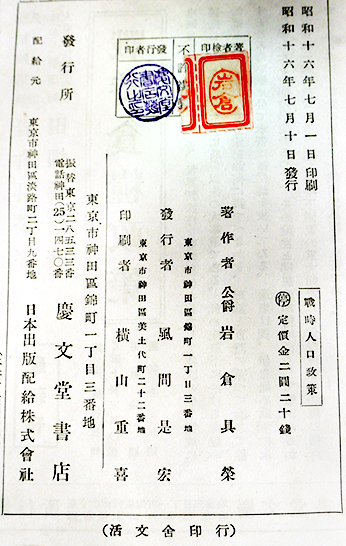 昭和十六年七月一日印刷
昭和十六年七月十日發行
戰時人口政策
停 定價金二圓二十錢
著者檢印
不許
發行者印
岩倉
著作者 公爵 岩倉具榮
東京市神田區錦町一丁目三番地
發行者 風間是宏
東京市神田區美土代町二十二番地
印刷者 橫山重喜
東京市神田區錦町一丁目三番地
發行所 慶文堂書店
振替東京二八五三三番
電話神田(25)一四七〇番
東京市神田區淡路町二丁目九番地
配給元 日本出版配給株式會社
(活文舍印行)